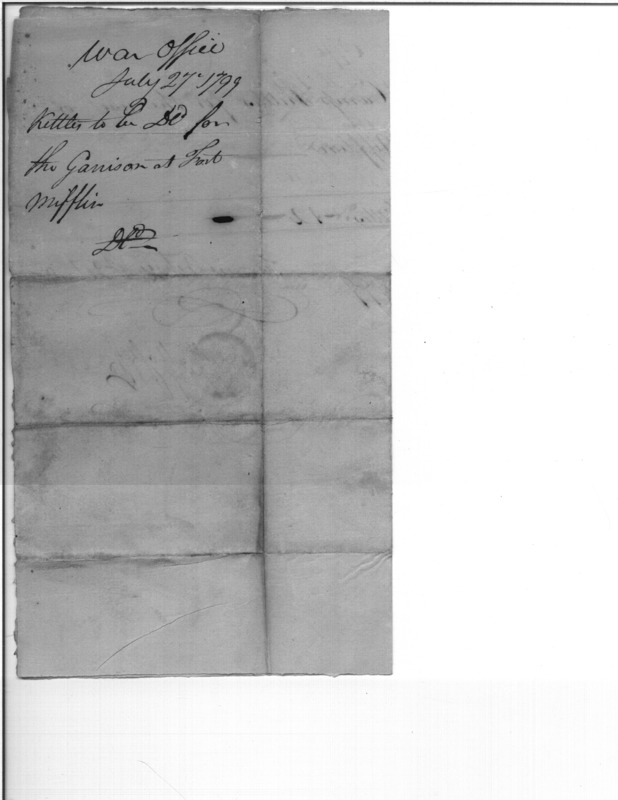 War Office
July 27th 1799
Kettles to be Dld for
the Garrison at Fort
Mifflin
Dld